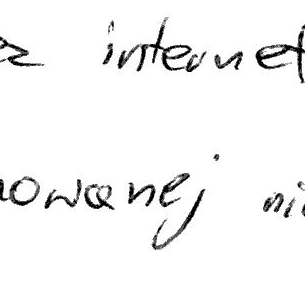 ez internet
nowanej ni